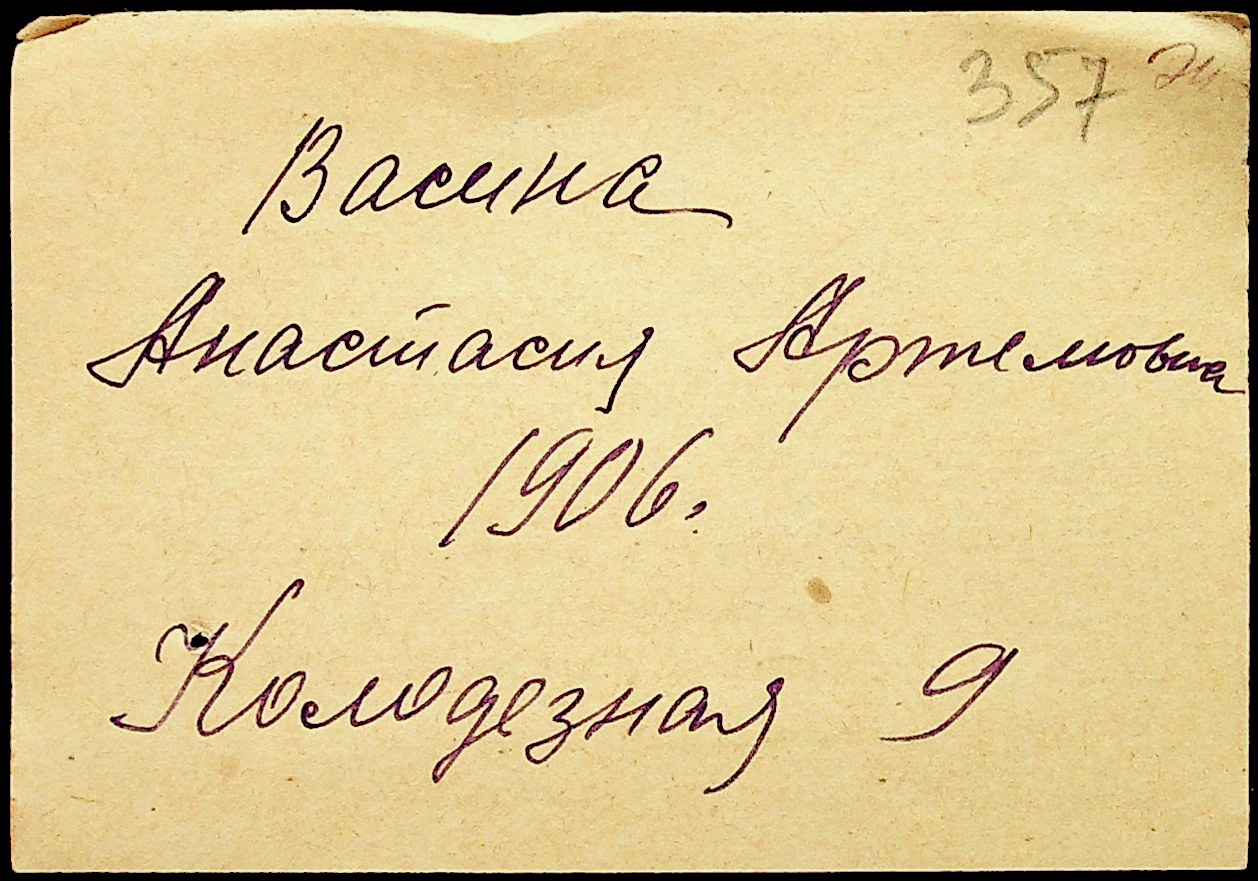 357
Васина
Анастасия Артемовна
1906.
Колодезная 9